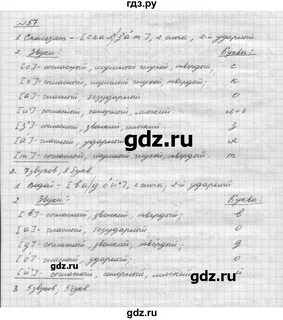 №57
1. Скользит - [скал'з'ит], 2 слога, 2-й ударный.
2. Звуки: Буквы:
[с]-согласный, шумный глухой, твердый; с
[к]-согласный, шумный глухой, твердый; к
[а]-гласный, безударной о
[л']-согласный, сонорный, мягкий л+ь
[з']-согласный, звонкий, мягкий з
[и]-гласный, ударной и
[т]-согласный, шумный глухой, твердый; т
3. 7 звуков, 8 букв.
1. Водой - [вадой'], 2 слога, 2-й ударной
2. Звуки: Буквы:
[в]-согласный, звонкий, твердый; в
[а]-гласный, безударной о
[д]-согласный, звонкий, твердый; д
[о]-гласный, ударной о
[й']-согласный, сонорный, мягкий й
3. 5 звуков, 5 букв.
gdz.ru
gdz.ru
gdz.ru
gdz.ru